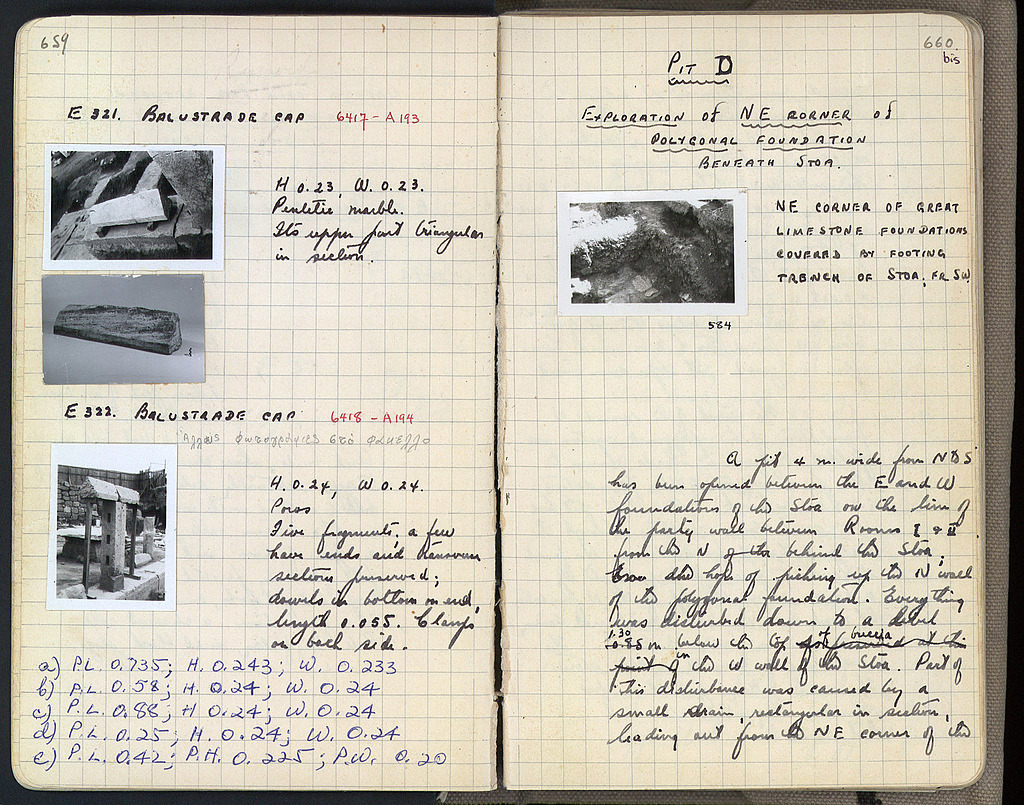 659
E 321. BALUSTRADE CAP 6417 - A 193
H 0.23, W. 0.23.
Pentelic marble.
Its upper part triangular
in section.
E 322. BALUSTRADE CAP 6418 - A 194
Άλλες φωτογραφίες στο φάκελλο
H. 0.24, W 0.24.
Poros
Five fragments; a few
have ends and transverse
sections preserved;
dowels in bottom on end,
length 0.055. Clamps
on back side.
a) P.L. 0.735; H. 0.243; W. 0.233
b) P.L. 0.58; H. 0.24; W. 0.24
c) P.L. 0.88; H 0.24; W. 0.24
d) P.L. 0.25; H. 0.24; W. 0.24
e) P.L. 0.42; P.H. 0.225; P.W. 0.20
660
bis
PIT D
EXPLORATION of NE CORNER of
POLYGONAL FOUNDATION
BENEATH STOA.
NE CORNER OF GREAT
LIMESTONE FOUNDATIONS
COVERED BY FOOTING
TRENCH OF STOA, FR. SW.
584
A pit 4 m. wide from N to S
has been opened between the E and W
foundations of the Stoa on the line of
the party wall between Rooms I & II
from the N of the behind the Stoa,
the hope of picking up the N wall
of the polygonal foundation. Everything
was disturbed down to a level
1.30
0.85 m below the top of
in the W wall of the Stoa. Part of
this disturbance was caused by a
small drain, rectangular in section,
leading out from the NE corner of the